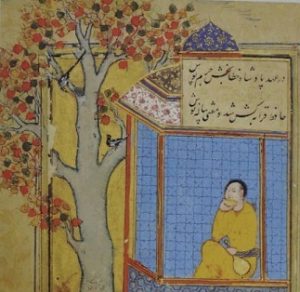 در عهد پادشاه خطابخش جرم پوش
حافظ قرابه کش شد و مفتی پیاله نوش